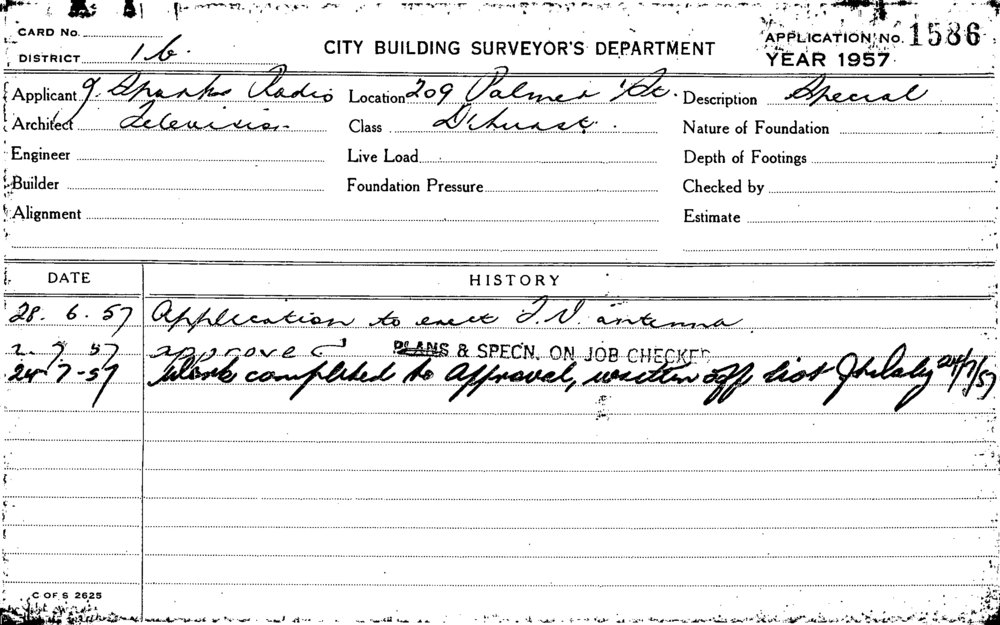 CARD No.
DISTRICT 1 b.
CITY BUILDING SURVEYOR'S DEPARTMENT
APPLICATION No. 1586
YEAR 1957
Applicant J. Sparks Radio Location 209 Palmer St. Description Special
Architect Television Class D'hurst. Nature of Foundation
Engineer Live Load Depth of Footings
Builder Foundation Pressure Checked by
Alignment Estimate
DATE HISTORY
28. 6. 57 Application to erect T.V. antenna
2. 7. 57 approved PLANS & SPECN. ON JOB CHECKED
24-7-57 Work completed to Approval, written off list 24/7/57
C OF S 2625